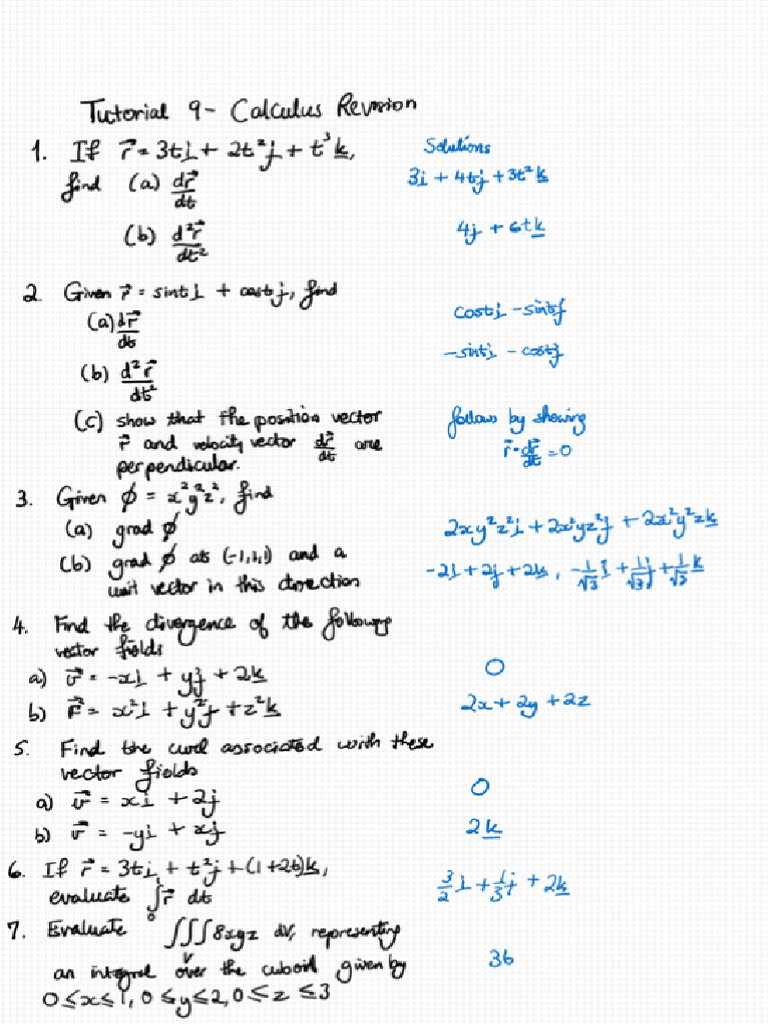 Tutorial 9 - Calculus Revision
1. If r⃗ = 3ti + 2t²j + t³k,
find (a) dr⃗/dt
(b) d²r⃗/dt²
Solutions
3i + 4tj + 3t²k
4j + 6tk
2. Given r⃗ = sint i + cost j, find
(a) dr⃗/dt
(b) d²r⃗/dt²
(c) show that the position vector
r⃗ and velocity vector dr⃗/dt are
perpendicular.
cost i - sint j
-sint i - cost j
follows by showing
r⃗ · dr⃗/dt = 0
3. Given ϕ = x²y²z², find
(a) grad ϕ
(b) grad ϕ at (-1,1,1) and a
unit vector in this direction
2xy²z²i + 2x²yz²j + 2x²y²zk
-2i + 2j + 2k, -1/√3 i + 1/√3 j + 1/√3 k
4. Find the divergence of the following
vector fields
a) v⃗ = -xi + yj + 2k
b) F⃗ = x²i + y²j + z²k
0
2x + 2y + 2z
5. Find the curl associated with these
vector fields
a) v⃗ = xi + 2j
b) v⃗ = -yi + xj
0
2k
6. If r⃗ = 3ti + t²j + (1+2t)k,
evaluate ∫₀¹ r⃗ dt
3/2 i + 1/3 j + 2k
7. Evaluate ∫∫∫_V 8xyz dV, representing
an integral over the cuboid given by
0 ≤ x ≤ 1, 0 ≤ y ≤ 2, 0 ≤ z ≤ 3
36